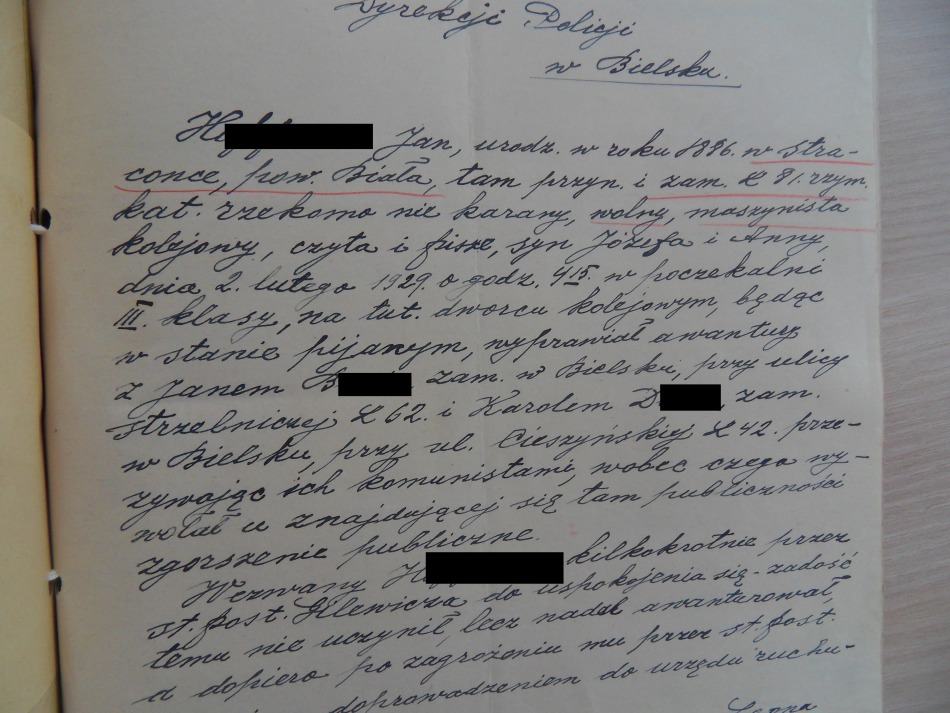 Dyrekcji Policji
w Bielsku.
Jan, urodz. w roku 1896. w Stra-
conce, pow. Biała, tam przyn. i zam. L 81. rzym.
kat. rzekomo nie karany, wolny, maszynista
kolejowy, czyta i pisze, syn Józefa i Anny,
dnia 2. lutego 1929. o godz. 4 15. w poczekalni
III. klasy, na tut. dworcu kolejowym, będąc
w stanie pijanym, wyprawiał awantury
z Janem B zam. w Bielsku, przy ulicy
Strzelniczej L 62. i Karolem D zam.
w Bielsku, przy ul. Cieszyńskiej L 42. prze-
zywając ich komunistami, wobec czego wy-
wołał u znajdującej się tam publiczności
zgorszenie publiczne.
Wezwany kilkokrotnie przez
st. post. Gilewicza do uspokojenia się - zadość
temu nie uczynił, lecz nadal awanturował,
a dopiero po zagrożeniu mu przez st. post.
doprowadzeniem do urzędu ruchu-